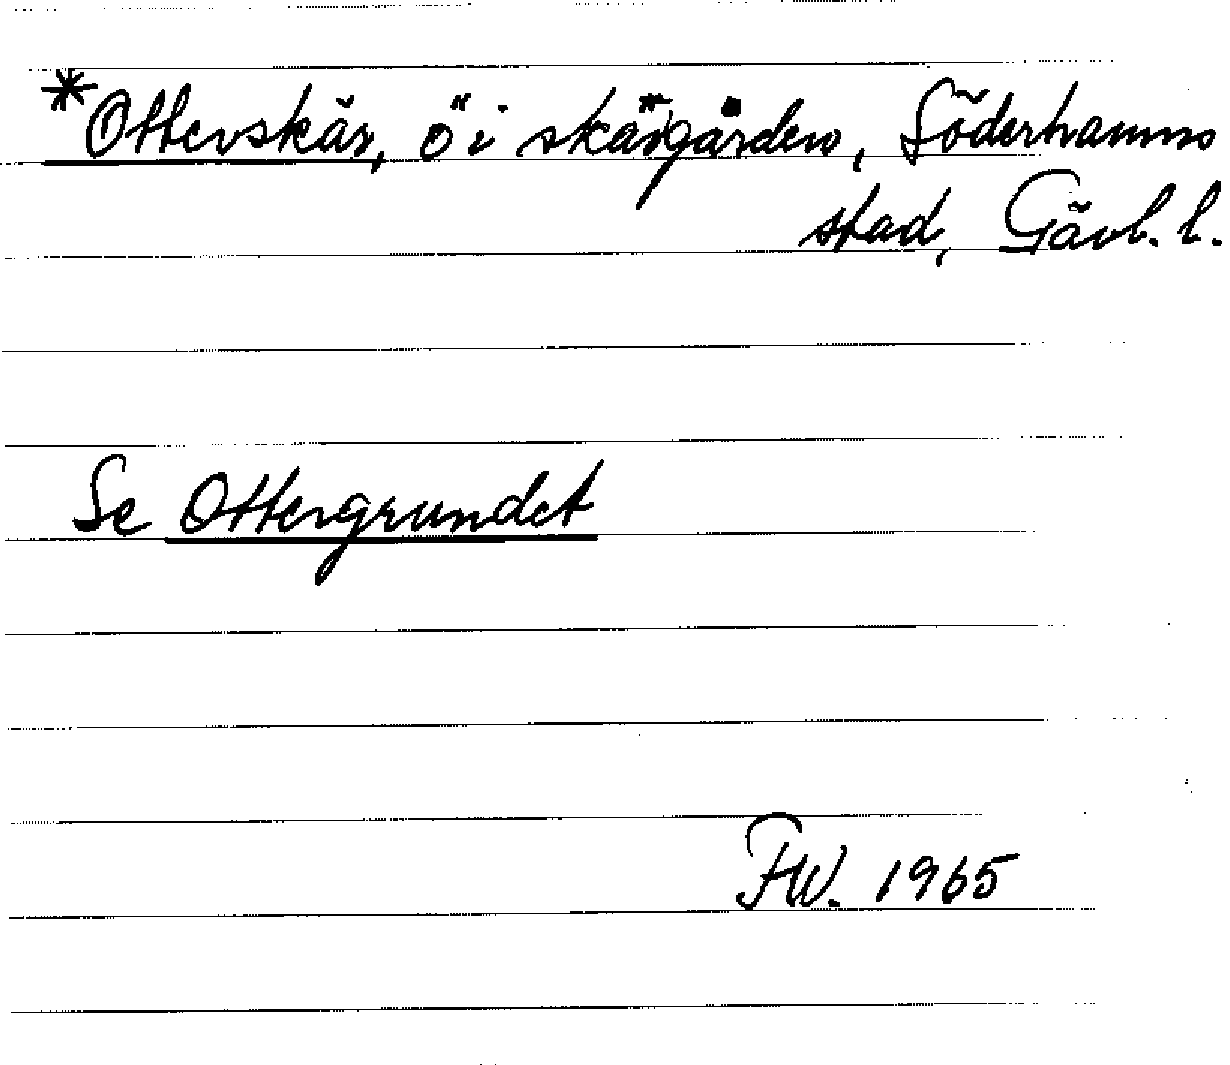 *Otterskär, ö i skärgården, Söderhamns
stad, Gävl. l.
Se Ottergrundet
FW. 1965